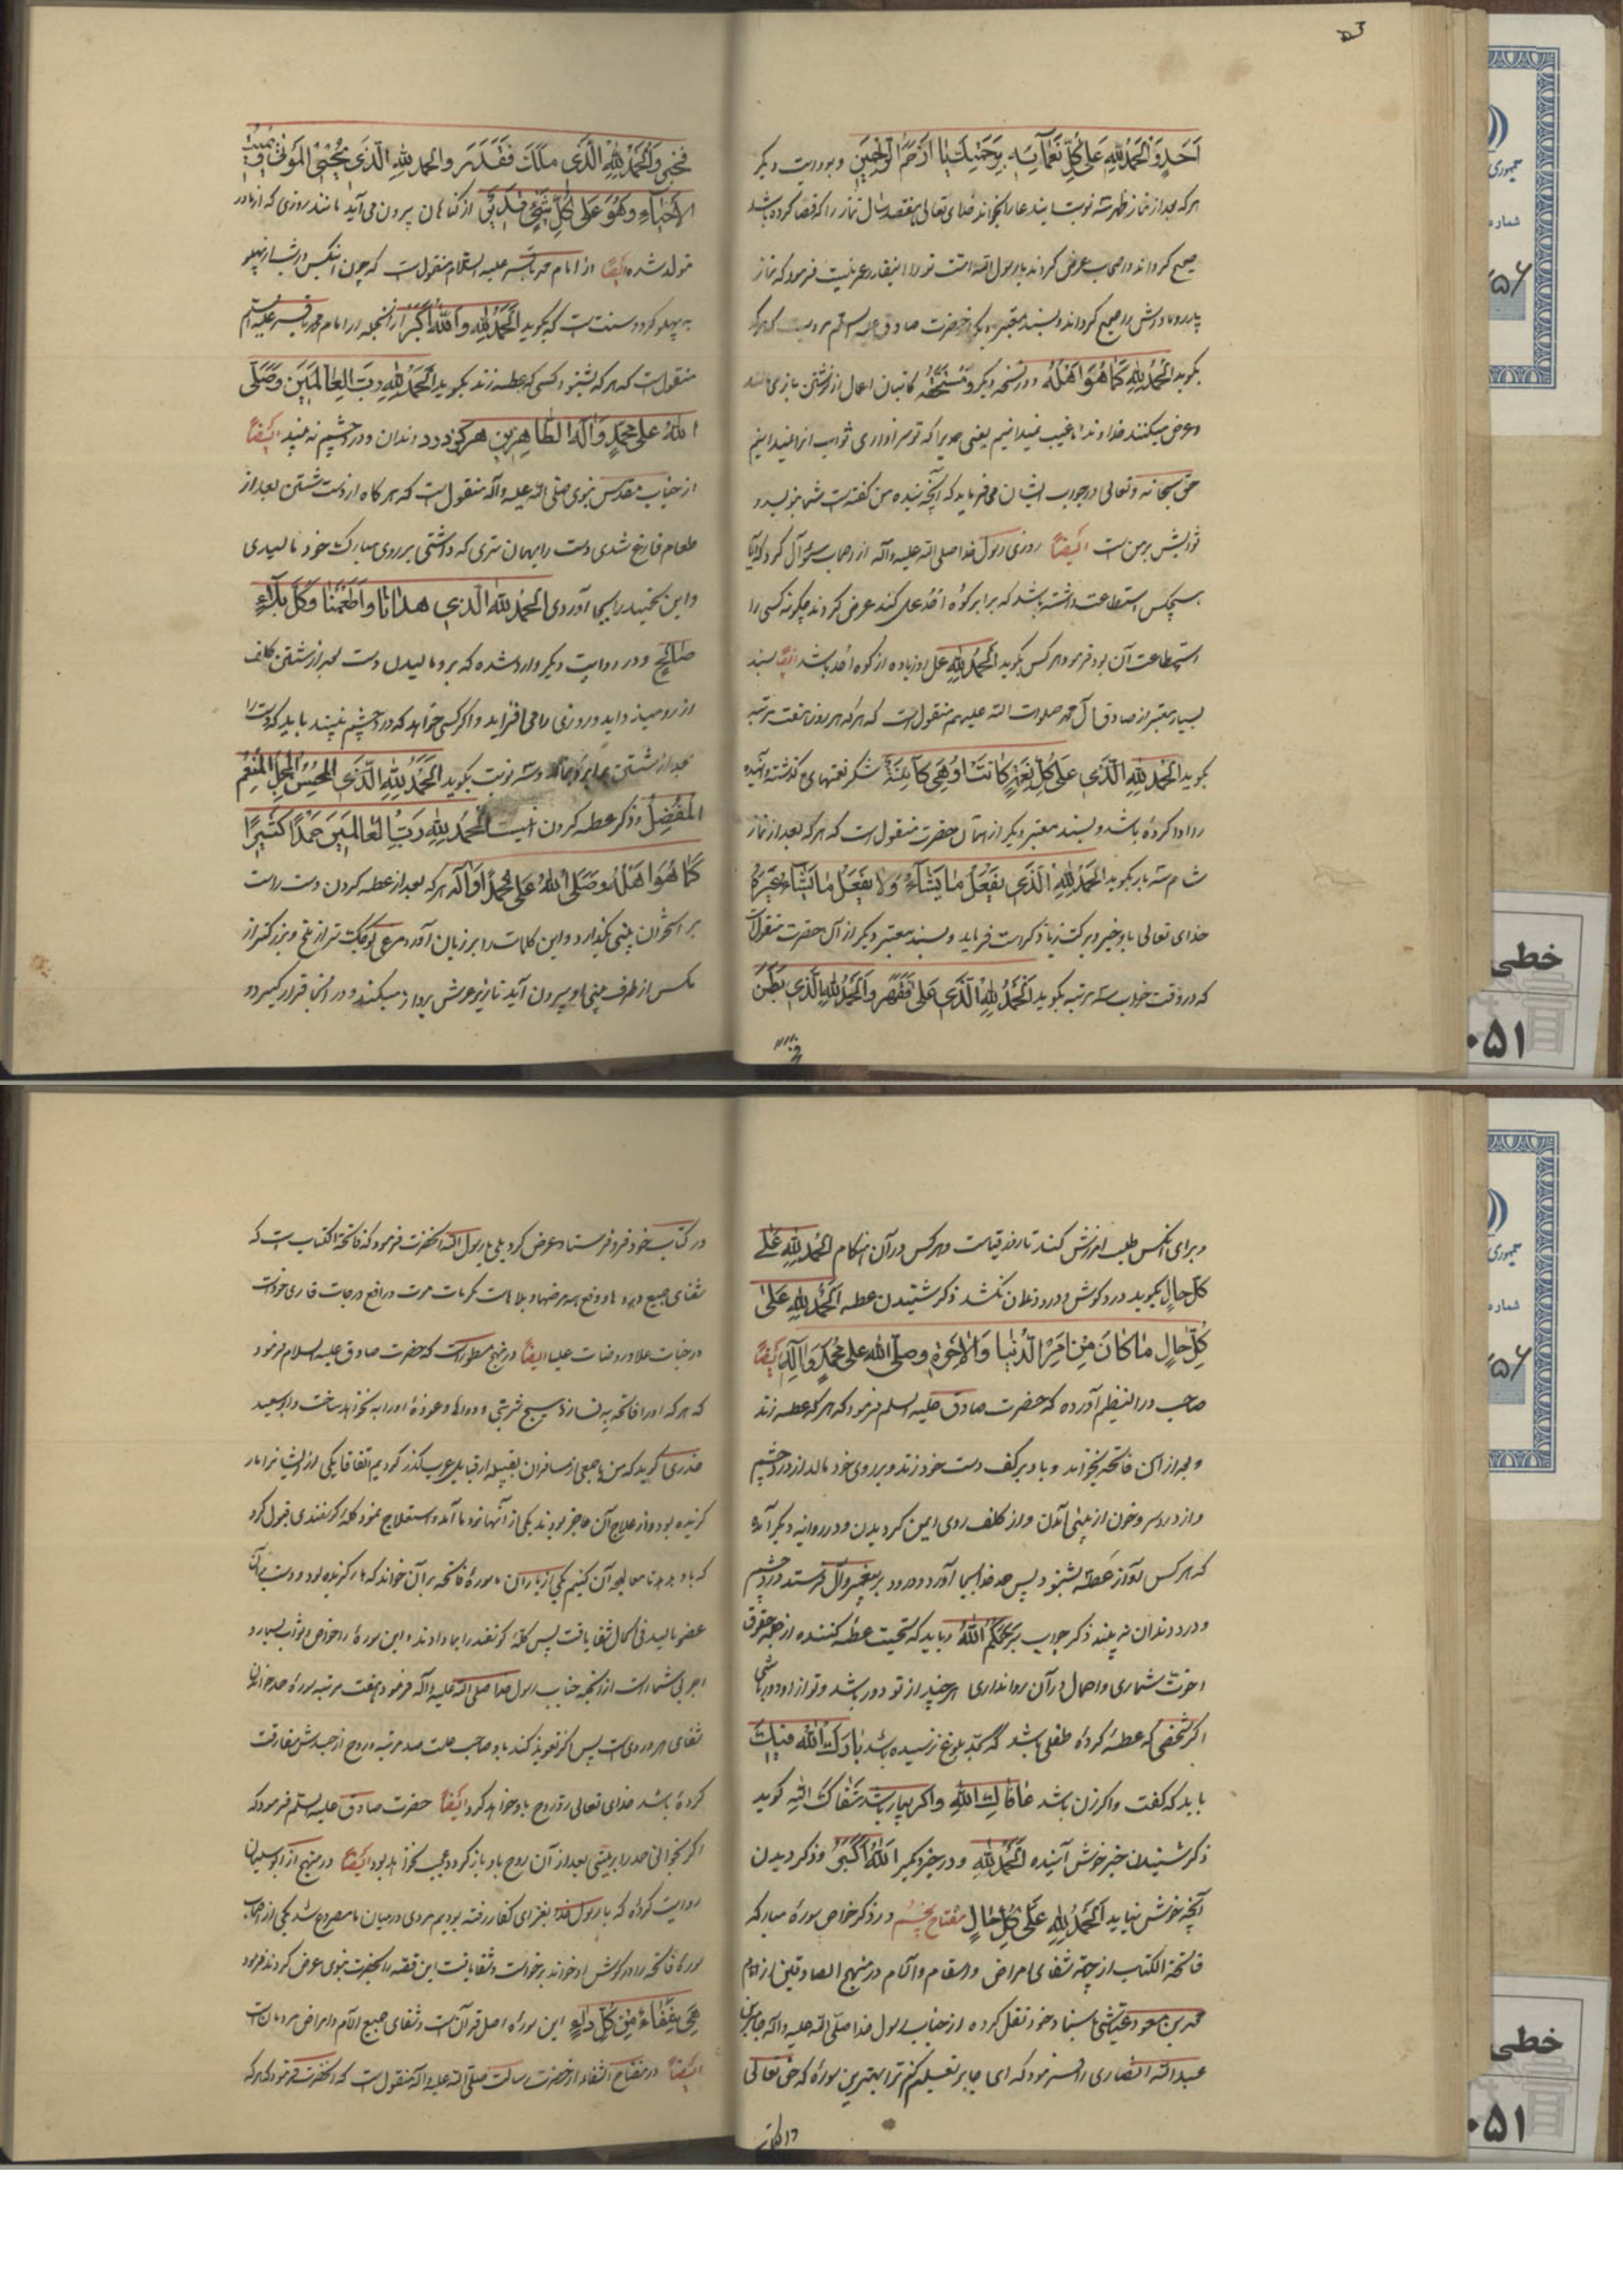 اَحَدٍ وَالْحَمْدُ لِلّٰهِ عَلیٰ كُلِّ نَعْمآئِهِ بِرَحْمَتِكَ يٰا اَرْحَمَ الرّٰاحِمِينَ و بروایت دیگر
هر که بعد از نماز ظهر سه نوبت ایندعا را بخواند خدای تعالی هفتصد سال نماز را که قضا کرده باشد
صحیح گرداند اصحاب عرض کردند یا رسول الله امت تو را اینقدر عمر نیست فرمود که نماز
پدر و مادرش را صحیح گرداند و بسند معتبر دیگر از حضرت صادق علیه السلام مرویست که هر که
بگوید اَلْحَمْدُ لِلّٰهِ كَمٰا هُوَ اَهْلُهُ و در نسخه دیگر وَ مُسْتَحَقُّهُ کاتبان اعمال از نوشتن باز می مانند
و عرض میکنند خداوندا ما غیب نمیدانیم یعنی حمدیرا که تو سزاواری ثواب آنرا نمیدانیم
حق سبحانه و تعالی در جواب ایشان می فرماید که آنچه بنده من گفته است شما بنویسید و
ثوابش بر من است ایضاً روزی رسول خدا صلی الله علیه و آله از اصحاب سؤال کرد که آیا
هیچکس استطاعت داشته باشد که برابر کوه اُحُد عمل کند عرض کردند چگونه کسی را
استطاعت آن بود فرمود هر کس بگوید اَلْحَمْدُ لِلّٰهِ عمل او زیاده از کوه اُحُد باشد ایضاً بسند
بسیار معتبر از صادق آل محمد صلوات الله علیهم منقولست که هر که هر روز هفت مرتبه
بگوید اَلْحَمْدُ لِلّٰهِ الَّذی عَلیٰ كُلِّ نِعْمَةٍ كٰانَتْ اَوْ هِیَ كٰائِنَةٌ شکر نعمتهای گذشته و آینده
را ادا کرده باشد و بسند معتبر دیگر از همان حضرت منقول است که هر که بعد از نماز
شام سه بار بگوید اَلْحَمْدُ لِلّٰهِ الَّذی يَفْعَلُ مٰا يَشٰآءُ وَلا يَفْعَلُ مٰا يَشٰآءُ غَيْرُهُ
خدای تعالی باو خیر و برکت زیاد کرامت فرماید و بسند معتبر دیگر از آن حضرت منقولست
که در وقت خواب سه مرتبه بگوید اَلْحَمْدُ لِلّٰهِ الَّذی عَلیٰ فَقَهَرَ وَالْحَمْدُ لِلّٰهِ الَّذی بَطَنَ
فخبر
فَخَبَرَ وَالْحَمْدُ لِلّٰهِ الَّذی مَلَكَ فَقَدَرَ وَالْحَمْدُ لِلّٰهِ الَّذی يُحْيِی الْمَوْتیٰ وَ يُمِيتُ
الاَحْيٰآءَ وَ هُوَ عَلیٰ كُلِّ شَیْءٍ قَدِيرٌ از گناهان بیرون می آید مانند روزی که از مادر
متولد شده ایضاً از امام محمد باقر علیه السلام منقول است که چون آنکس در شب از پهلو
به پهلو گردد سنت است که بگوید اَلْحَمْدُ لِلّٰهِ وَ اَللّٰهُ اَكْبَرُ از آنجمله از امام محمد باقر علیه السلام
منقول است که هر که بشنود کسی که عطسه زند بگوید اَلْحَمْدُ لِلّٰهِ رَبِّ الْعٰالَمِينَ وَ صَلَّی
اللّٰهُ عَلیٰ مُحَمَّدٍ وَ اٰلِهِ الطّٰاهِرِينَ هرگز درد دندان و درد چشم نه بیند ایضاً
از جناب مقدس نبوی صلی الله علیه و آله منقول است که هر گاه از دست شستن بعد از
طعام فارغ شدی دست را بهمان تری که داشتی بر روی مبارک خود مالیدی
و این تحمید را بجا آوردی اَلْحَمْدُ لِلّٰهِ الَّذی هَدٰانٰا وَ اَطْعَمَنٰا وَ كُلَّ بَلآءٍ
صٰالِحٍ و در روایت دیگر وارد شده که برو مالیدن دست بعد از شستن کلف
از رو میزداید و روزی را می افزاید و اگر کسی خواهد که درد چشم نبیند باید که دست را
بعد از شستن بر ابرو بمالد و سه نوبت بگوید اَلْحَمْدُ لِلّٰهِ الَّذی الْمُحْسِنُ الْمُجْمِلُ الْمُنْعِمُ
الْمُفْضِلُ و ذکر عطسه کردن اینست اَلْحَمْدُ لِلّٰهِ رَبِّ الْعٰالَمِينَ حَمْدًا كَثِيرًا
كَمٰا هُوَ اَهْلُهُ وَ صَلَّی اللّٰهُ عَلیٰ مُحَمَّدٍ وَ اٰلِهِ هر که بعد از عطسه کردن دست راست
بر استخوان بینی بگذارد و این کلمات را بر زبان آورد مرغی کوچکتر از ملخ و بزرگتر از
مگس از طرف بینی او بیرون آید تا بزیر عرش پرواز میکند و در آنجا قرار گیرد و
و برای آنکس طلب امرزش کند تا روز قیامت و هر کس در آن هنگام اَلْحَمْدُ لِلّٰهِ عَلیٰ
كُلِّ حٰالٍ بگوید درد گوش و درد دندان نکشد ذکر شنیدن عطسه اَلْحَمْدُ لِلّٰهِ عَلیٰ
كُلِّ حٰالٍ مٰا كٰانَ مِنْ اَمْرِ الدُّنْيٰا وَ الاٰخِرَةِ وَ صَلَّی اللّٰهُ عَلیٰ مُحَمَّدٍ وَ اٰلِهِ ایضاً
صاحب در النظیم آورده که حضرت صادق علیه السلام فرمود که هر که عطسه زند
و بعد از آن فاتحه بخواند و باد بر کف دست خود زند و بر روی خود مالد از درد چشم
و از درد سر و خون از بینی آمدن و از کلف روی ایمن گردیدن و در روایه دیگر آمده
که هر کس آواز عطسه بشنود پس حمد خدا بجا آورد و درود بر پیغمبر و آل فرستد درد چشم
و درد دندان نه بیند ذکر جواب يَرْحَمُكُمُ اللّٰهُ و باید که تحیت عطسه کننده از جمله حقوق
اخوت شماری و اهمال در آن روا نداری هر چند از تو دور باشد و تو از او دور باشی
اگر شخصی که عطسه کرده طفلی باشد که بحد بلوغ نرسیده باشد بٰارَكَ اللّٰهُ فِيكَ
باید که گفت و اگر زن باشد عٰافٰاكِ اللّٰهُ و اگر بیمار باشد شَفٰاكَ اللّٰهُ گوید
ذکر شنیدن خبر خوش آینده اَلْحَمْدُ لِلّٰهِ و در خبر دیگر اَللّٰهُ اَكْبَرُ و ذکر دیدن
آنچه خوش نیاید اَلْحَمْدُ لِلّٰهِ عَلیٰ كُلِّ حٰالٍ مفتاح پنجم در ذکر خواص سورهٔ مبارکه
فاتحة الکتاب از جهة شفای امراض و اسقام و آلام در منهج الصادقین از امام
محمد بن مسعود عیاشی باسناد خود نقل کرده از جناب رسول خدا صلّی الله علیه و آله جابر بن
عبد الله انصاری را فرمود که ای جابر تعلیم کنم ترا بهترین سورهٔ که حق تعالی
در کتاب
در کتاب خود فرو فرستاد عرض کرد بلی یا رسول الله آنحضرت فرمود که فاتحة الکتاب است که
شفای جمیع دردها و دفع همه مرضها و بلاها است مگر مات موت و رافع درجات قاری خود است
در جنات علا و روضات علیا ایضاً در منهج مسطور است که حضرت صادق علیه السلام فرمود
که هر که او را فاتحه به نسازد هیچ شربتی و دوائی و عوذهٔ او را به نخواهد ساخت و ابو سعید
خدری گوید که من با جمعی از مسافران بقبیله از قبایل عرب گذر کردیم اتفاقا یکی از ایشانرا مار
گزیده بود و از علاج آن عاجز بودند یکی از آنها نزد ما آمد و استعلاج نمود گلهٔ گوسفندی قبول کرد
که باو بدهد تا معالجه آن کنیم یکی از یاران ما سورهٔ فاتحه بر آن خواند که مار گزیده بود و دست بر آن
عضو مالید فی الحال شفا یافت پس گلهٔ گوسفند را بما دادند و این سورهٔ را خواص و ثواب بسیار و
اجر بی شمار است از آنجمله جناب رسول خدا صلی الله علیه و آله فرمود هفت مرتبه سورهٔ حمد خواندن
شفای هر دردی است پس اگر تعویذ کند باو صاحب علت صد مرتبه و روح از جسدش مفارقت
کرده باشد خدای تعالی رد روح باو خواهد کرد ایضاً حضرت صادق علیه السلام فرمود که
اگر بخوانی حمد را بر میتی بعد از آن روح باو باز گردد عجب نخواهد بود ایضاً در منهج از ابو سلیمان
روایت کرده که با رسول خدا بغزای کفار رفته بودیم مردی در میان ما مصروع شد یکی از اصحاب
سورهٔ فاتحه را در گوش او خواند برخواست و شفا یافت این قصه را بحضرت نبوی عرض کردند فرمود
هِیَ شِفٰآءٌ مِنْ كُلِّ دٰآءٍ این سوره اصل قرآنست و شفای جمیع آلام و امراض مردمانست
ایضاً در مفتاح الشفاء از حضرت رسالت صلّی الله علیه و آله منقول است که آنحضرت فرمود که هر که
جمهوری
شماره
خطی
۰۵۱
جمهوری
شماره
خطی
۰۵۱